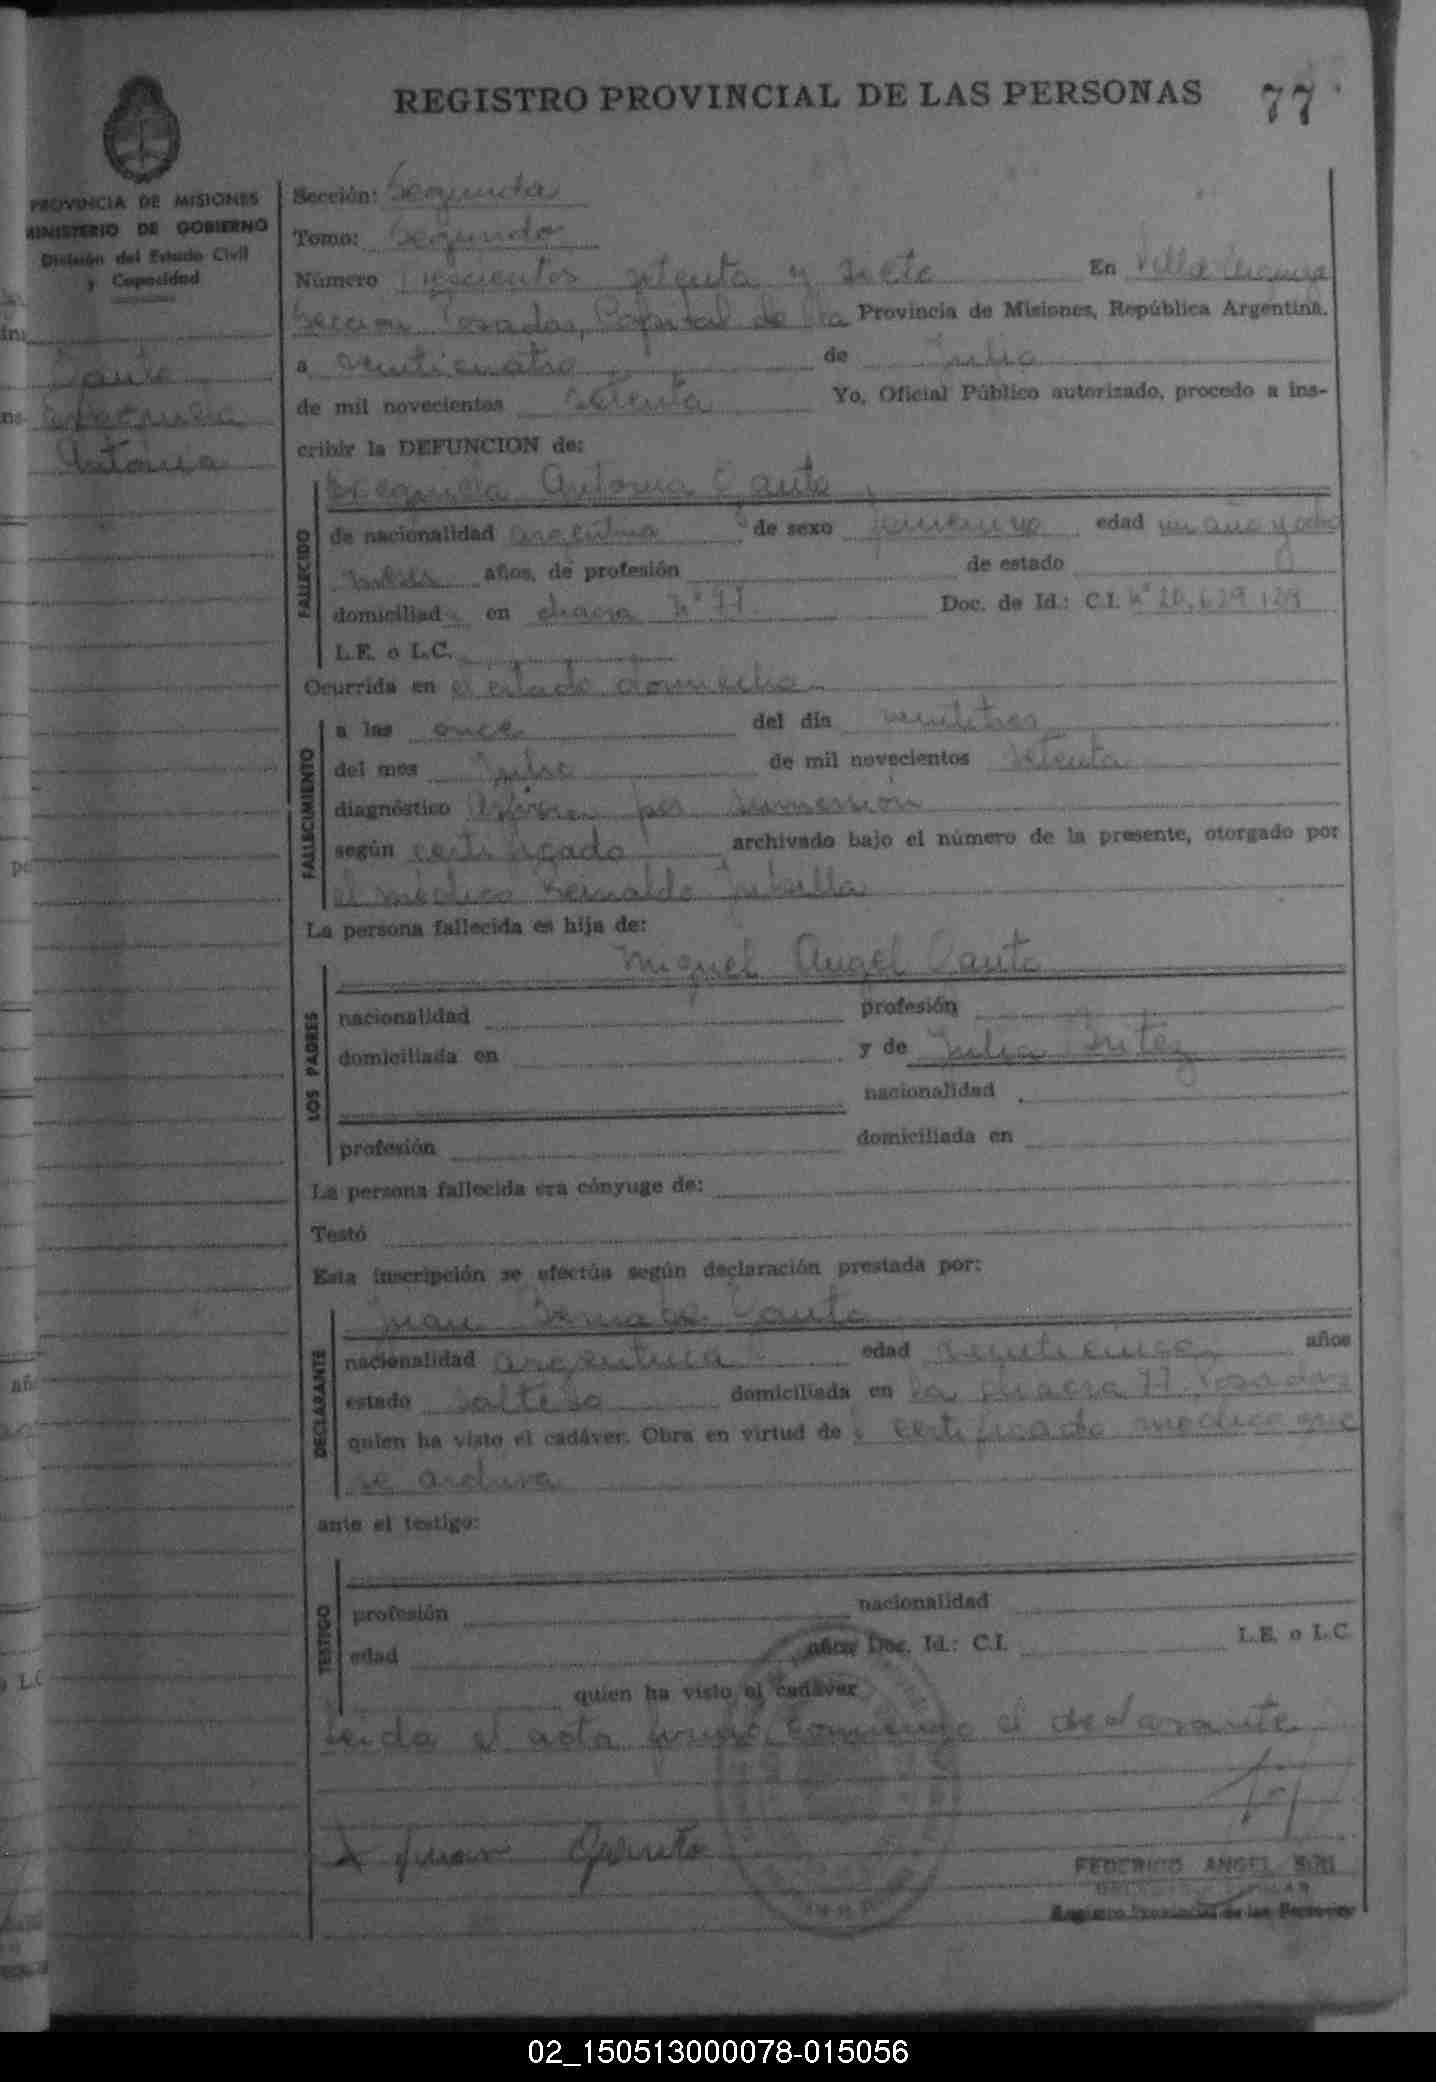 REGISTRO PROVINCIAL DE LAS PERSONAS 77
PROVINCIA DE MISIONES
MINISTERIO DE GOBIERNO
División del Estado Civil
y Capacidad
Gauto
Ezequiela
Antonia
Sección: Segunda
Tomo: Segundo
Número Doscientos setenta y siete En Villa Urquiza
Seccion Posadas, Capital de la Provincia de Misiones, República Argentina.
a veinticuatro de Julio
de mil novecientos setenta Yo, Oficial Público autorizado, procedo a ins-
cribir la DEFUNCION de:
FALLECIDO
Ezequiela Antonia Gauto
de nacionalidad argentina de sexo femenino edad un año y ocho
meses años, de profesión de estado
domiciliada en chacra Nº 77 Doc. de Id.: C.I. Nº 20.629.129
L.E. o L.C.
Ocurrida en el citado domicilio
FALLECIMIENTO
a las once del día veintitres
del mes Julio de mil novecientos setenta
diagnóstico Asfixia por inmersión
según certificado archivado bajo el número de la presente, otorgado por
el médico Reinaldo
La persona fallecida es hija de:
LOS PADRES
Miguel Angel Gauto
nacionalidad profesión
domiciliada en y de Julia Britez
nacionalidad
profesión domiciliada en
La persona fallecida era cónyuge de:
Testó
Esta inscripción se efectúa según declaración prestada por:
DECLARANTE
Juan Bernabe Gauto
nacionalidad argentina edad veinticinco años
estado soltero domiciliada en la chacra 77 Posadas
quien ha visto el cadáver. Obra en virtud de certificado medico que
se archiva
ante el testigo:
TESTIGO
profesión nacionalidad
edad años Doc. Id.: C.I. L.E. o L.C.
quien ha visto el cadáver
Leida el acta firmó conmigo el declarante
X Juan Gauto
FEDERICO ANGEL
Registro Provincial de las Personas
02_150513000078-015056